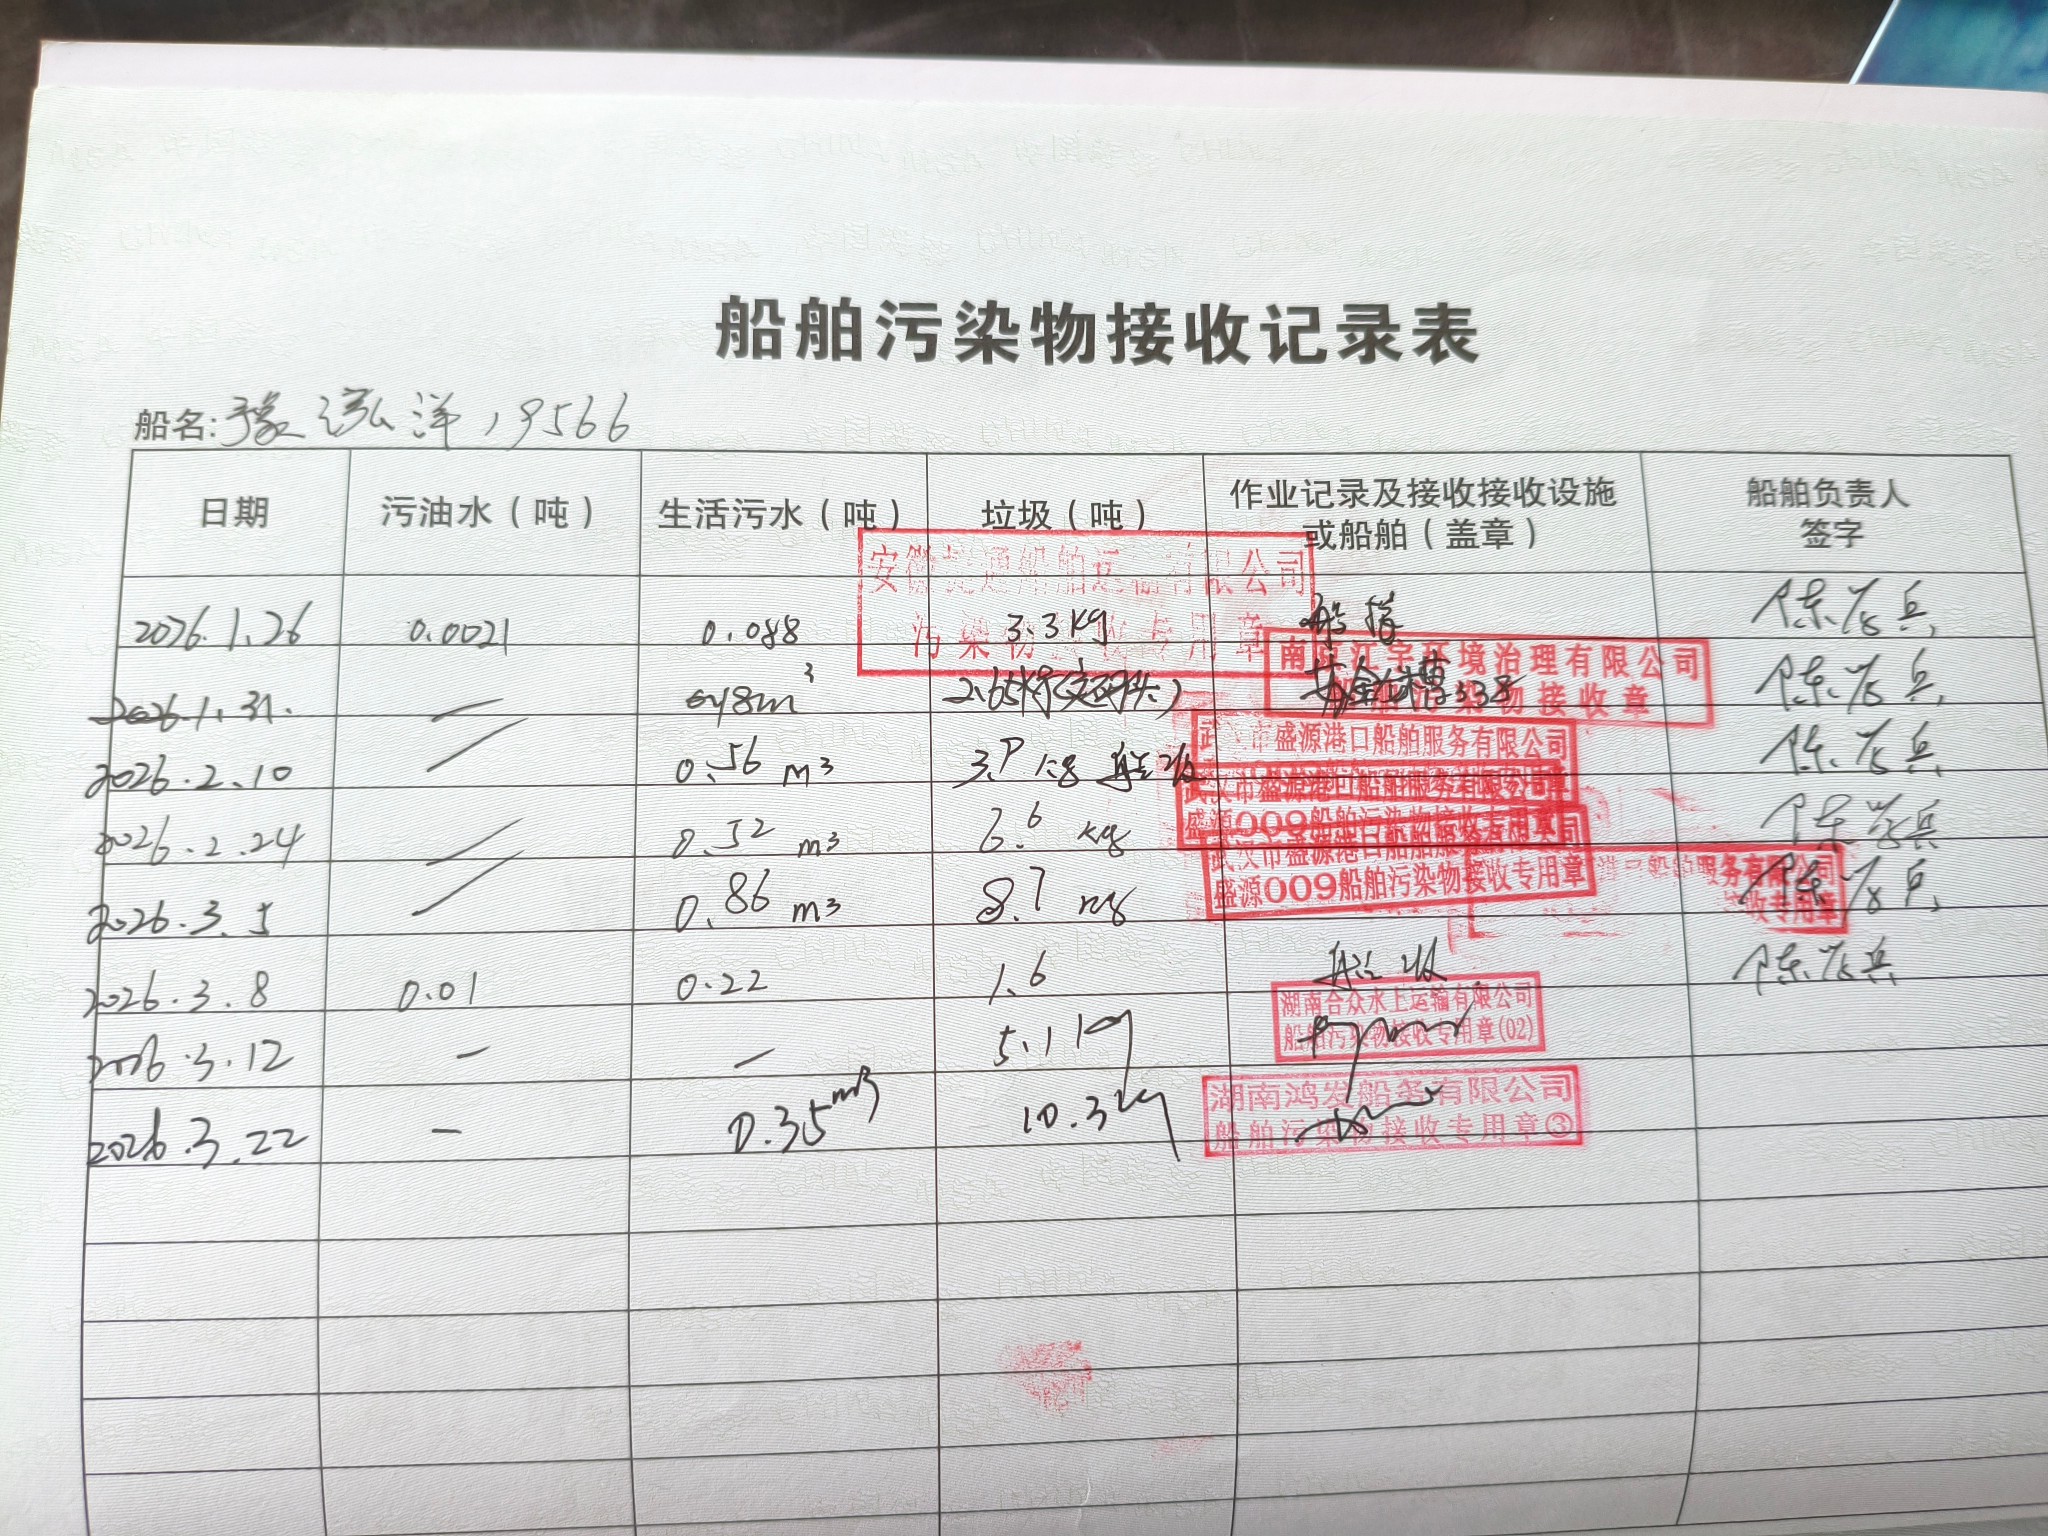 船舶污染物接收记录表
船名: 豫泓洋19566
日期 污油水（吨） 生活污水（吨） 垃圾（吨） 作业记录及接收接收设施或船舶（盖章） 船舶负责人签字
安徽 通船舶运输有限公司
污染物接收专用章
2026.1.26 0.0021 0.088 3.3kg 船接 陈 兵
南 江宇环境治理有限公司
船舶污染物接收章
2026.1.31. / 0.48m³ 2.65 338 陈 兵
武汉市盛源港口船舶服务有限公司
2026.2.10 / 0.56 m³ 3.9 kg 船收 陈 兵
武汉市盛源港口船舶服务有限公司
盛源009船舶污染物接收专用章
2026.2.24 / 0.52 m³ 6.6 kg 陈 兵
武汉市盛源港口船舶服务有限公司
盛源009船舶污染物接收专用章
港口船舶服务有限公司
收专用章
2026.3.5 / 0.86 m³ 8.7 kg 陈 兵
2026.3.8 0.01 0.22 1.6 船收 陈 兵
湖南合众水上运输有限公司
船舶污染物接收专用章(02)
2026.3.12 — — 5.1kg
湖南鸿发船务有限公司
船舶污染物接收专用章③
2026.3.22 — 0.35m³ 10.3kg